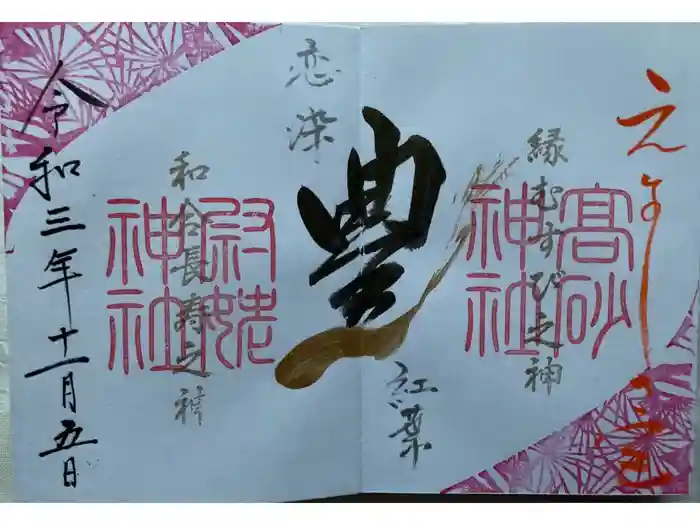 縁むすび之神
高砂神社
恋染
豊
紅葉
和合長寿之神
尉姥神社
令和三年十一月五日